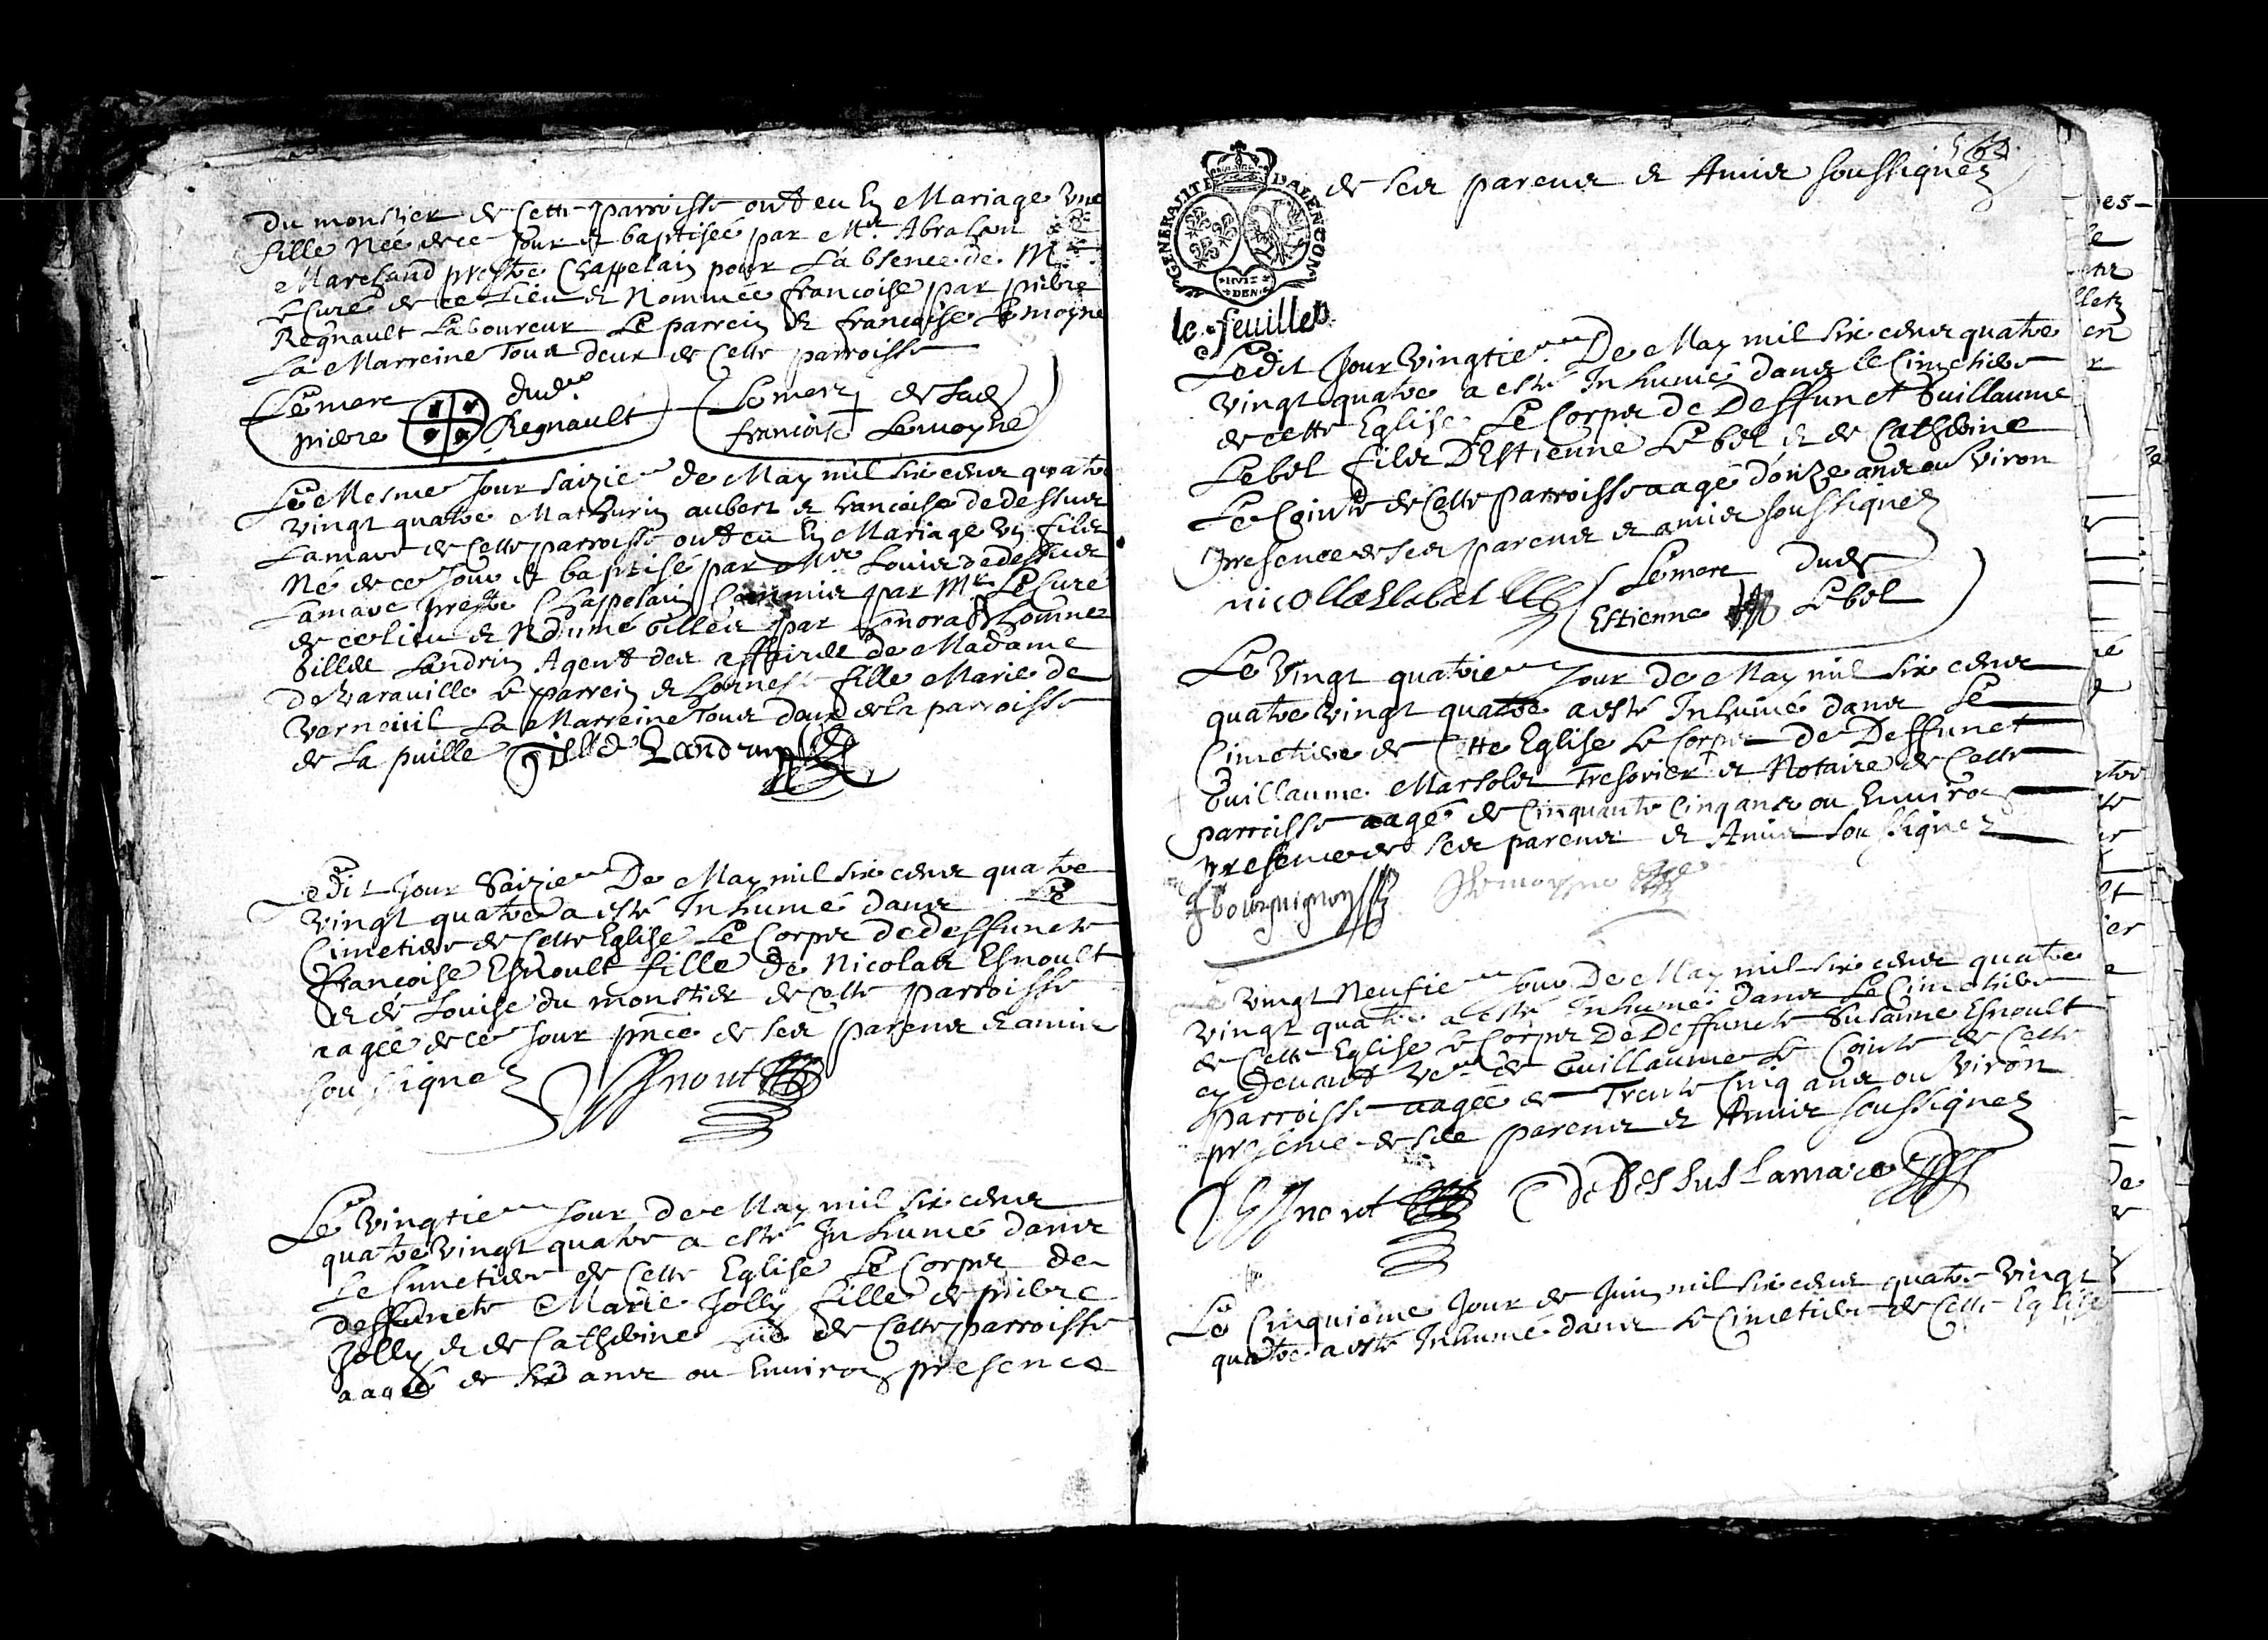 du monstier de Cette parroisse ont eu En Mariage Une
fille Née de ce Jour et baptisée par Mre Abraham
Marchand prestre Chappelain pour L'absence de Mr
Le Curé de ce Lieu et Nommée francoise par pierre
Regnault Laboureur Le parrein et francoise Lemoyne
La Marreine Tous deux de Cette parroisse
Le merc dud.
pierre Regnault
Le merc de lade
francoise Lemoyne
Le Mesme Jour saizie de May mil six cens quatre
vingt quatre Mathurin aubert et francoise de dessus
Lamare de Cette parroisse ont eu En Mariage Un fils
Né de ce Jour et baptisé par Mre Louis de dessus
Lamare prestre Chappelain Commis par Mr Le Curé
de ce lieu et Nommé Gilles par honorable homme
Gilles Landrin Agent des affaires de Madame
De Varaville Le parrein et fille Marie de
Verneuil La Marreine Tous deux de la parroisse
de La puille Gilles Landrin
Ledit Jour Saizie De May mil six cens quatre
vingt quatre a esté Inhumé dans Le
Cimetiere de Cette Eglise Le Corps de deffuncte
francoise Esnoult fille de Nicolas Esnoult
et de Louise du monstier de Cette parroisse
aagée de ce Jour pnce de ses parens et amis
soussignez Esnout
Le Vingtie Jour de May mil six cens
quatre Vingt quatre a esté Inhumé dans
Le Cimetiere de Cette Eglise Le Corps de
deffuncte Marie Jolly fille de pierre
Jolly et de Catherine de Cette parroisse
aagée de ans ou Environ presence
de ses parens et Amis soussignez
GENERALITE DALENCON
HVIT
DEN
le feuillet
Ledit Jour Vingtie De May mil six cens quatre
vingt quatre a esté Inhumé dans le Cimetiere
de cette Eglise Le Corps de Deffunct Guillaume
Lebel fils D'Estienne Lebel et de Catherine
Le Cointe de Cette Parroisse aagé d'onze ans ou Viron
presence de ses parens et amis soussignez
nicollas labat
Le merc dude
Estienne Lebel
Le Vingt quatrie Jour de May mil six cens
quatre vingt quatre a esté Inhumé dans Le
Cimetiere de Cette Eglise Le Corps De Deffunct
Guillaume Marsolet Tresorier et Notaire de Cette
parroisse aagé de Cinquante Cinq ans ou Environ
presence de ses parens et Amis soussignez
bourguignon Lemoyne
Le Vingt Neufie Jour De May mil six cens quatre
vingt quatre a esté Inhumé Dans Le Cimetiere
de Cette Eglise Le Corps De Deffuncte Susanne Esnoult
en devant Ve de Guillaume Le Cointe de Cette
parroisse aagée de Trente Cinq ans ou Viron
presence de ses parens et Amis soussignez
Esnout de Dessus Lamare
Le Cinquieme Jour de Juin mil six cens quatre Vingt
quatre a esté Inhumé dans Le Cimetiere de Cette Eglise